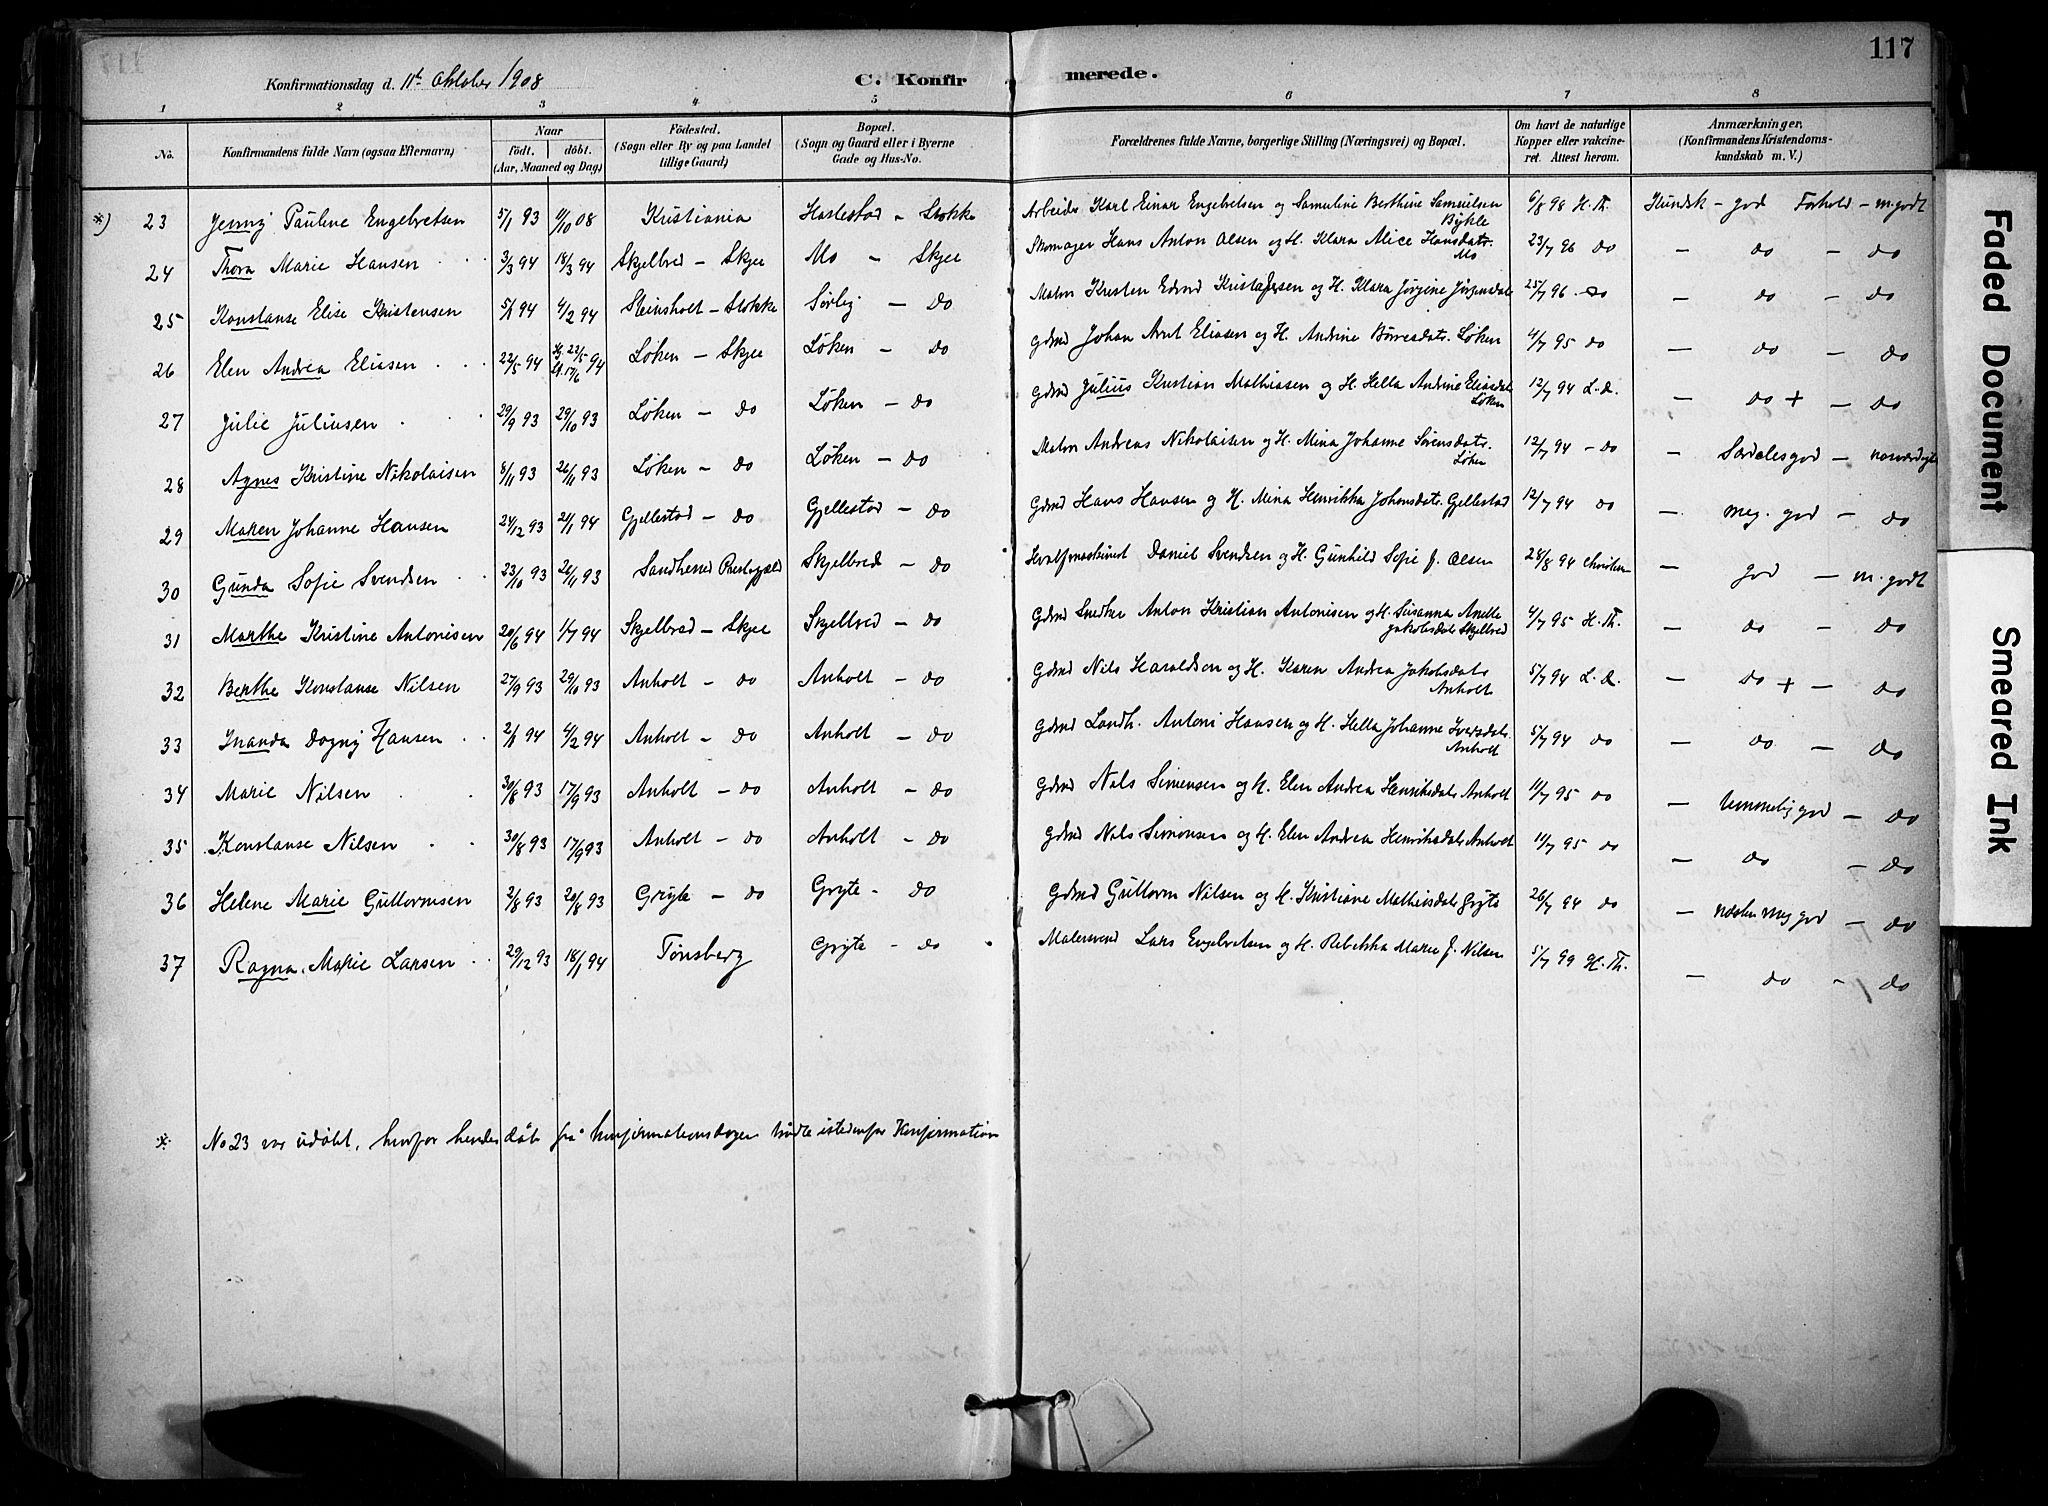 117
Konfirmationsdag d. 11te Oktober 1908
C. Konfirmerede.
1 2 3 4 5 6 7 8
No. Konfirmandens fulde Navn (ogsaa Efternavn) Naar født. døbt. (Aar, Maaned og Dag) Födested. (Sogn eller By og paa Landet tillige Gaard) Bopæl. (Sogn og Gaard eller i Byerne Gade og Hus-No. Forældrenes fulde Navne, borgerlige Stilling (Næringsvei) og Bopæl. Om havt de naturlige Kopper eller vakcineret. Attest herom. Anmærkninger, (Konfirmandens Kristendomskundskab m. V.)
*) 23 Jenny Pauline Engebretsen 5/1 93 11/10 08 Kristiania Haslestad - Stokke Arbeider Karl Einar Engebretsen og Samuline Berthine Samuelsen Bykle 6/8 98 H. Th. Kundsk - god Forhold - m. godt
24 Thora Marie Hansen 3/3 94 18/3 94 Skjelbred - Skjee Mo - Skjee Skomager Hans Anton Olsen og H. Klara Alice Hansdatr. Mo 23/7 96 do - do - do
25 Konstanse Elise Kristensen 5/1 94 4/2 94 Steinsholt - Stokke Sørby - do Matr Kristen Edvard Kristensen og H. Klara Jørgine Jørgensdatr 25/7 96 do - do - do
26 Elen Andrea Eliasen 22/5 94 Hj. 23/5 94 17/6 Løken - Skjee Løken - do Gdmd Johan Arnt Eliasen og H. Andrine Børresdatr. Løken 4/7 95 do - do - do
27 Julie Juliusen 29/9 93 29/10 93 Løken - do Løken - do Gdmd Julius Kristian Mathiasen og H. Hella Andrine Eliasdatr Løken 12/7 94 L. D. - do + - do
28 Agnes Kristine Nikolaisen 8/11 93 26/11 93 Løken - do Løken - do Matr Andreas Nikolaisen og H. Mina Johanne Sørensdatr. Løken 12/7 94 - do - Særdeles god - rosværdigt
29 Maren Johanne Hansen 24/12 93 21/1 94 Gjellestad - do Gjellestad - do Gdmd Hans Hansen og H. Mina Henrikka Johansdatr. Gjellestad 12/7 94 do - meg. god - do
30 Gunda Sofie Svendsen 23/10 93 26/11 93 Sandherred Præstegjæld Skjelbred - do Hvalfmaskinist Daniel Svendsen og H. Gunhild Sofie f. Olsen 28/8 94 - god - m. godt
31 Marthe Kristine Antonisen 20/6 94 1/7 94 Skjelbred - Skjee Skjelbred - do Gdmd Snedker Anton Kristian Antonisen og H. Susanna Anette Jakobsdatr Skjelbred 4/7 95 H. Th. - do - do
32 Berthe Konstanse Nilsen 27/9 93 29/10 93 Anholt - do Anholt - do Gdmd Nils Haraldsen og H. Karen Andrea Jakobsdatr Anholt 5/7 94 L. D. - do + - do
33 Inanda Dagny Hansen 2/1 94 4/2 94 Anholt - do Anholt - do Gdmd Landh. Antoni Hansen og H. Hella Johanne Iversdatr. Anholt 5/7 94 do - do - do
34 Marie Nilsen 30/8 93 17/9 93 Anholt - do Anholt - do Gdmd Nils Simensen og H. Elen Andrea Henriksdatr Anholt 11/7 95 do - temmelig god - do
35 Konstanse Nilsen 30/8 93 17/9 93 Anholt - do Anholt - do Gdmd Nils Simonsen og H. Elen Andrea Henriksdatr Anholt 11/7 95 do - do - do
36 Helene Marie Guttormsen 2/8 93 20/8 93 Gryte - do Gryte - do Gdmd Guttorm Nilsen og H. Kristiane Mathiasdatr Gryte 26/7 94 do - næsten meg god - do
37 Ragna Marie Larsen 29/12 93 18/1 94 Tønsberg Gryte - do Malersvend Lars Engebretsen og H. Rebekka Marie f. Nilsen 5/7 99 H. Th. - do - do
* No 23 var udøbt, hvorfor hendes dåb på konfirmationsdagen trådte istedenfor Konfirmation
Faded Document
Smeared Ink